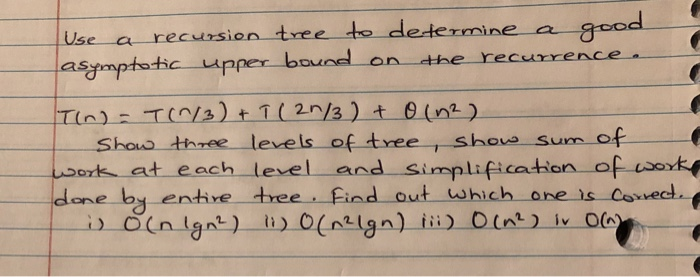 Use a recursion tree to determine a good
asymptotic upper bound on the recurrence.
T(n) = T(n/3) + T(2n/3) + θ(n²)
Show three levels of tree, show sum of
work at each level and simplification of work
done by entire tree. Find out which one is correct.
i) O(n lgn²) ii) O(n²lgn) iii) O(n²) iv O(n)